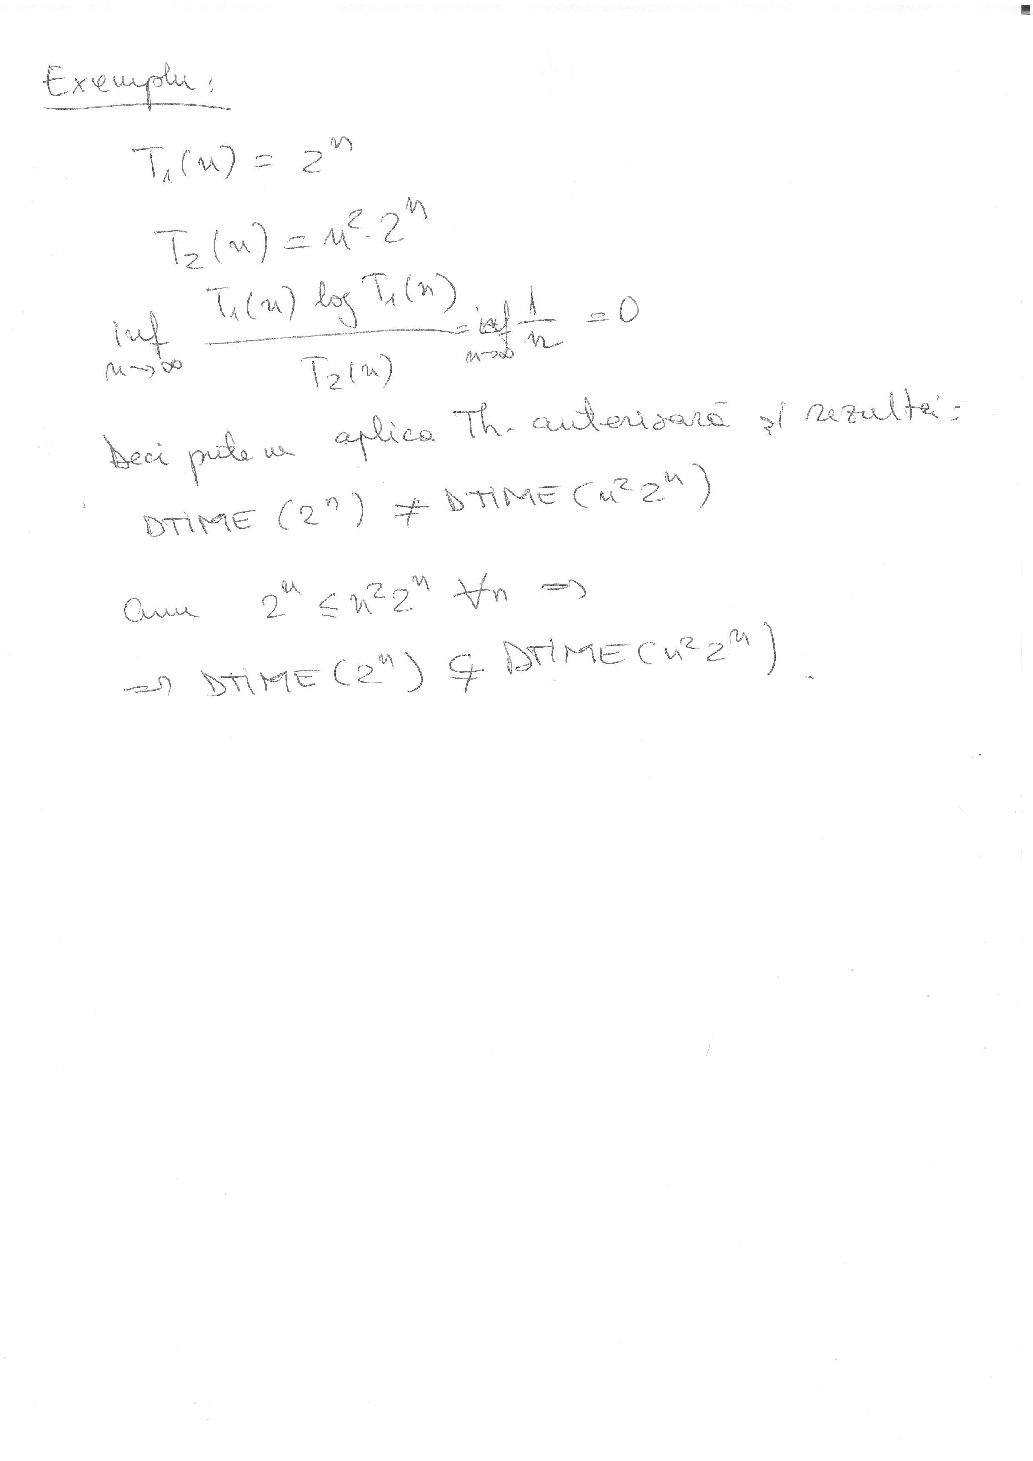 Exemplu:
T₁(n) = 2ⁿ
T₂(n) = n²·2ⁿ
inf n→∞ T₁(n) log T₁(n) / T₂(n) = inf n→∞ 1/n = 0
Deci putem aplica Th. anterioară și rezultă:
DTIME (2ⁿ) ≠ DTIME (n²2ⁿ)
2ⁿ ≤ n²2ⁿ ∀n ⇒
⇒ DTIME (2ⁿ) ⊊ DTIME (n²2ⁿ).